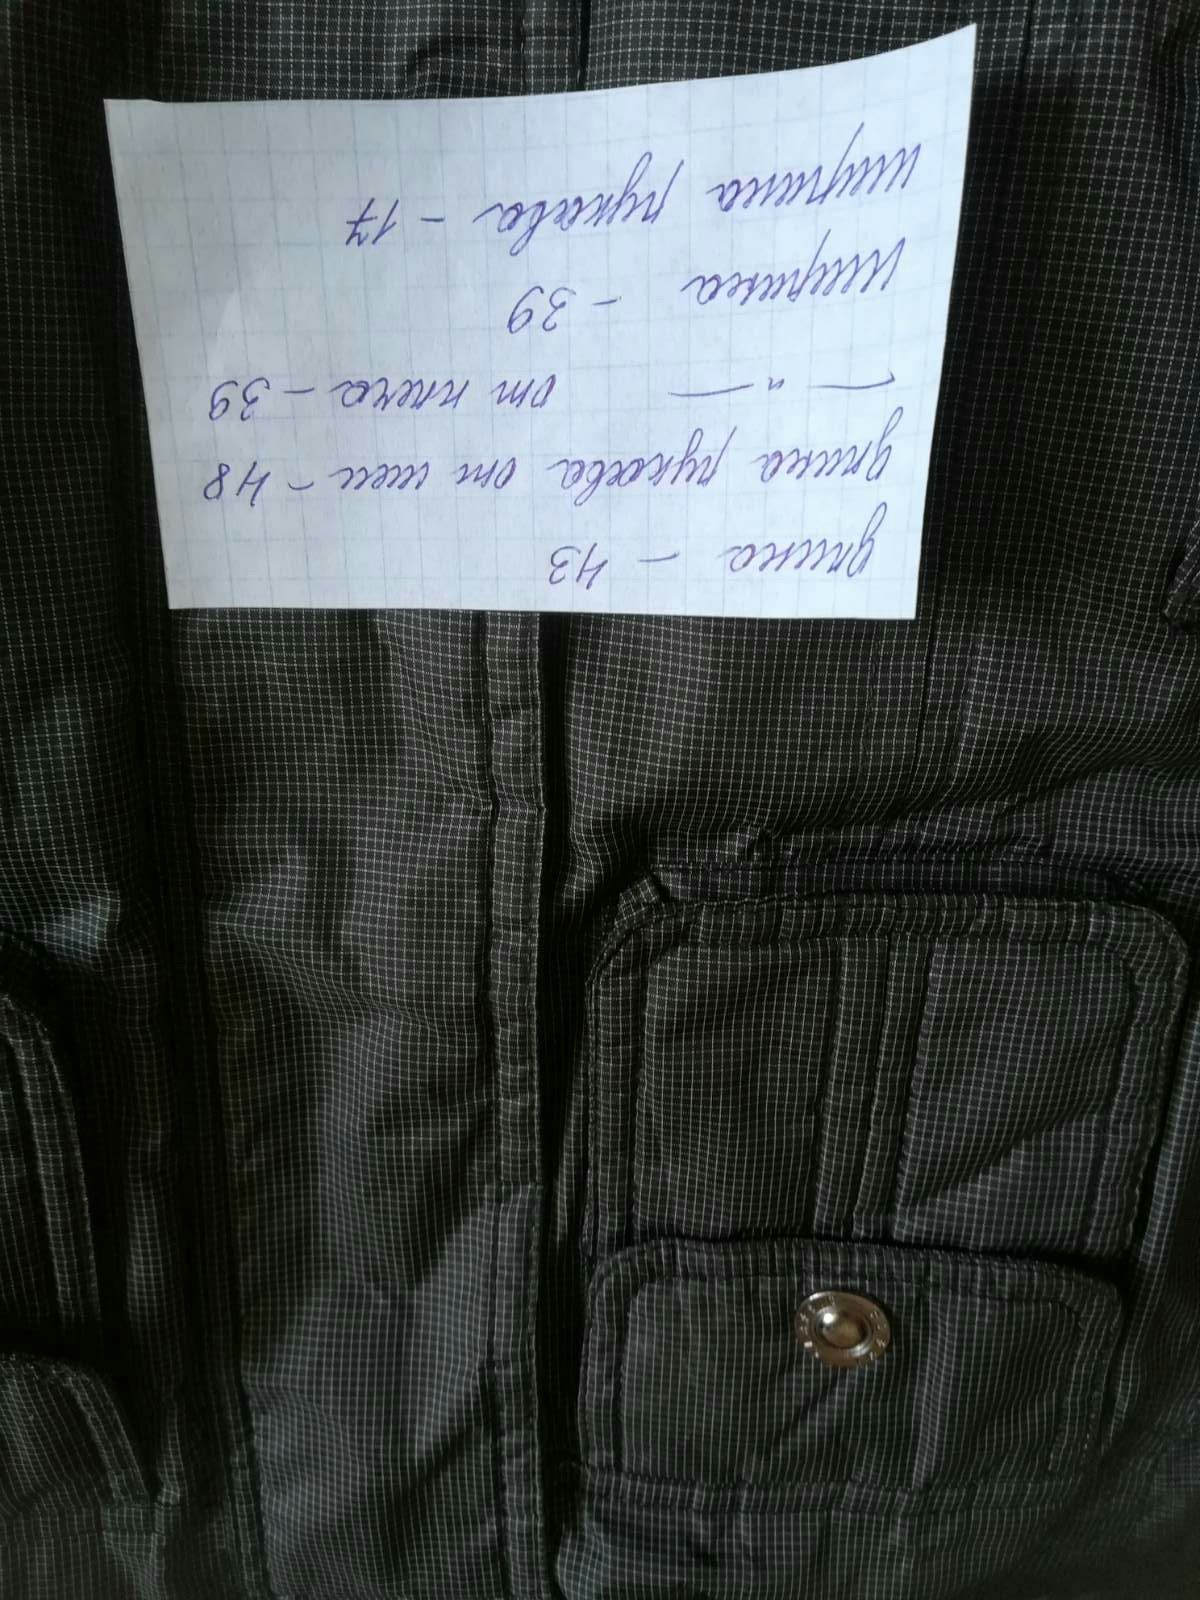 длина – 43
длина рукава от шеи – 48
— " — от плеча – 39
Ширина – 39
Ширина рукава – 17